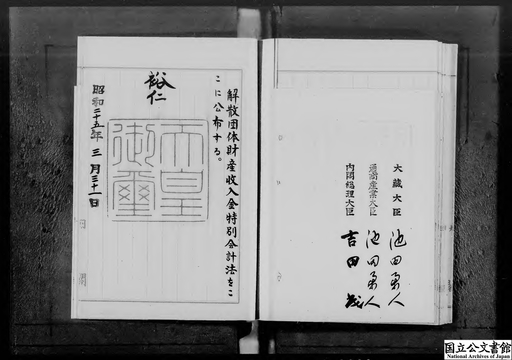 解散団体財産收入金特別会計法をこ
こに公布する。
裕仁
天皇
御璽
昭和二十五年三月三十一日
内閣
大藏大臣 池田勇人
通商産業大臣 池田勇人
内閣総理大臣 吉田茂
国立公文書館
National Archives of Japan